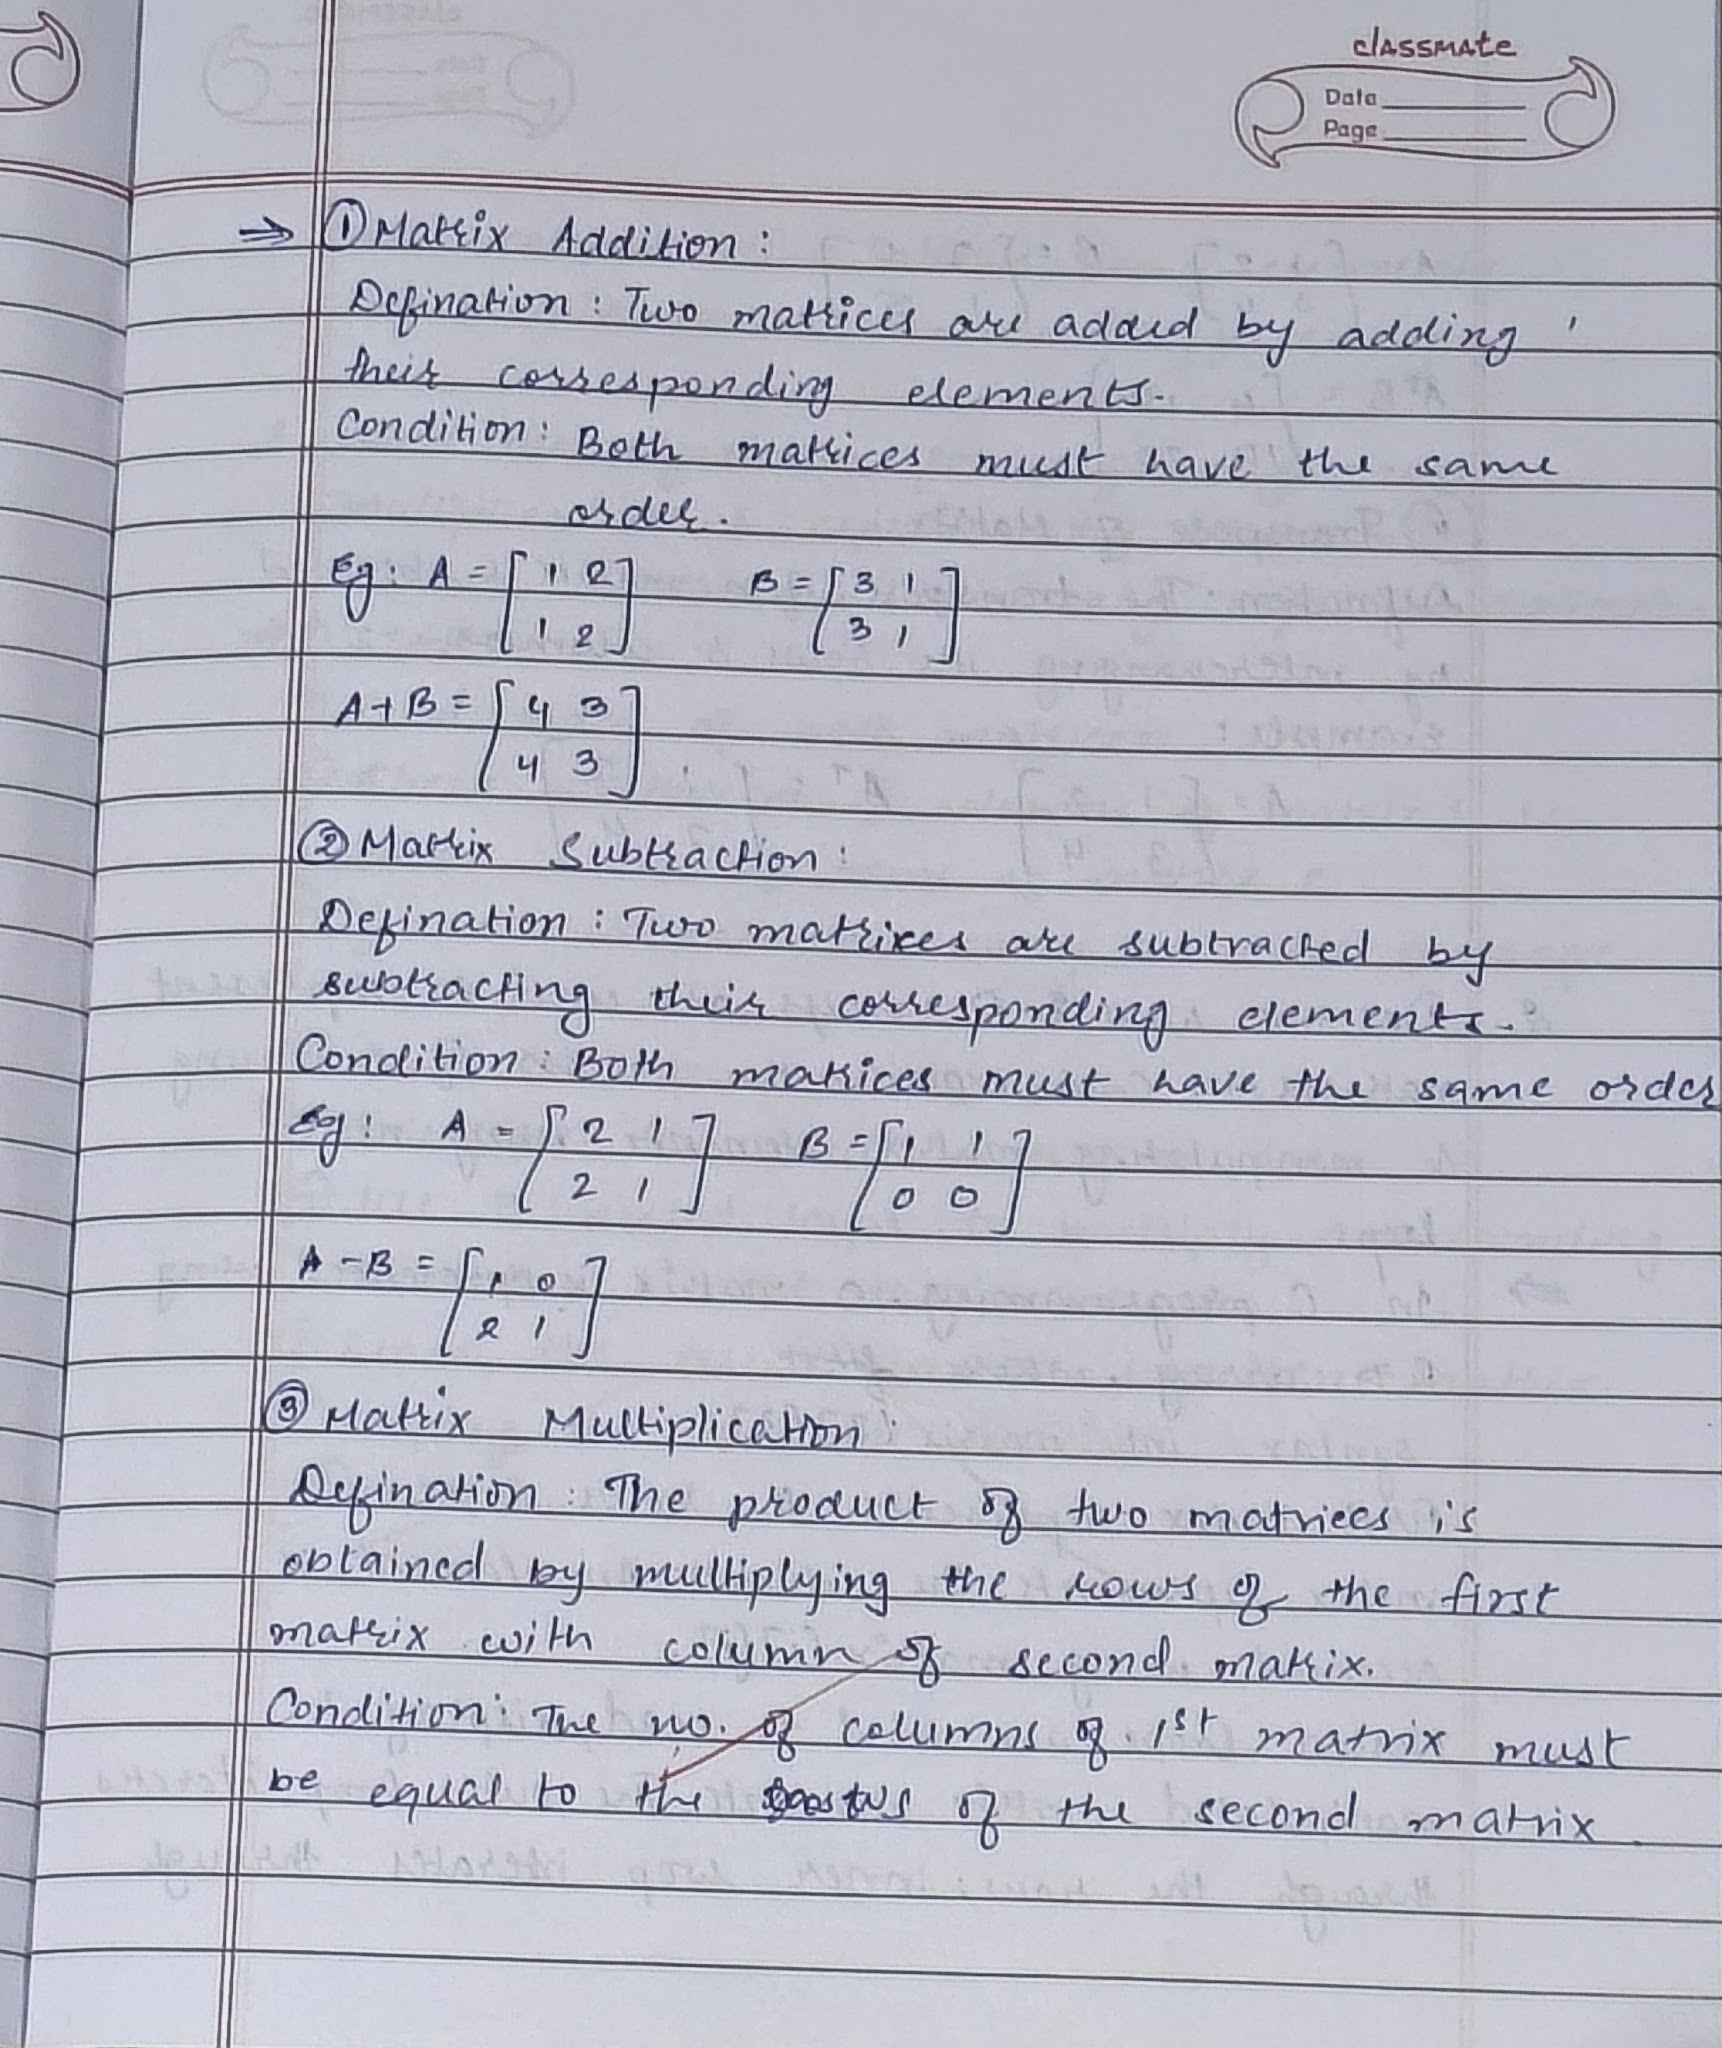 classmate
Date
Page
⇒ ① Matrix Addition :
Defination : Two matrices are added by adding
their corresponding elements.
Condition : Both matrices must have the same
order.
Eg : A = [ 1 2     B = [ 3 1 ]
1 2 ]     3 1
A+B = [ 4 3 ]
4 3
② Matrix Subtraction :
Defination : Two matrixes are subtracted by
subtracting their corresponding elements.
Condition : Both matrices must have the same order
Eg : A = [ 2 1 ]   B = [ 1 1 ]
2 1     0 0
A - B = [ 1 0 ]
2 1
③ Matrix Multiplication :
Defination : The product of two matrices is
obtained by multiplying the rows of the first
matrix with column of second matrix.
Condition : The no. of columns of 1st matrix must
be equal to the of the second matrix